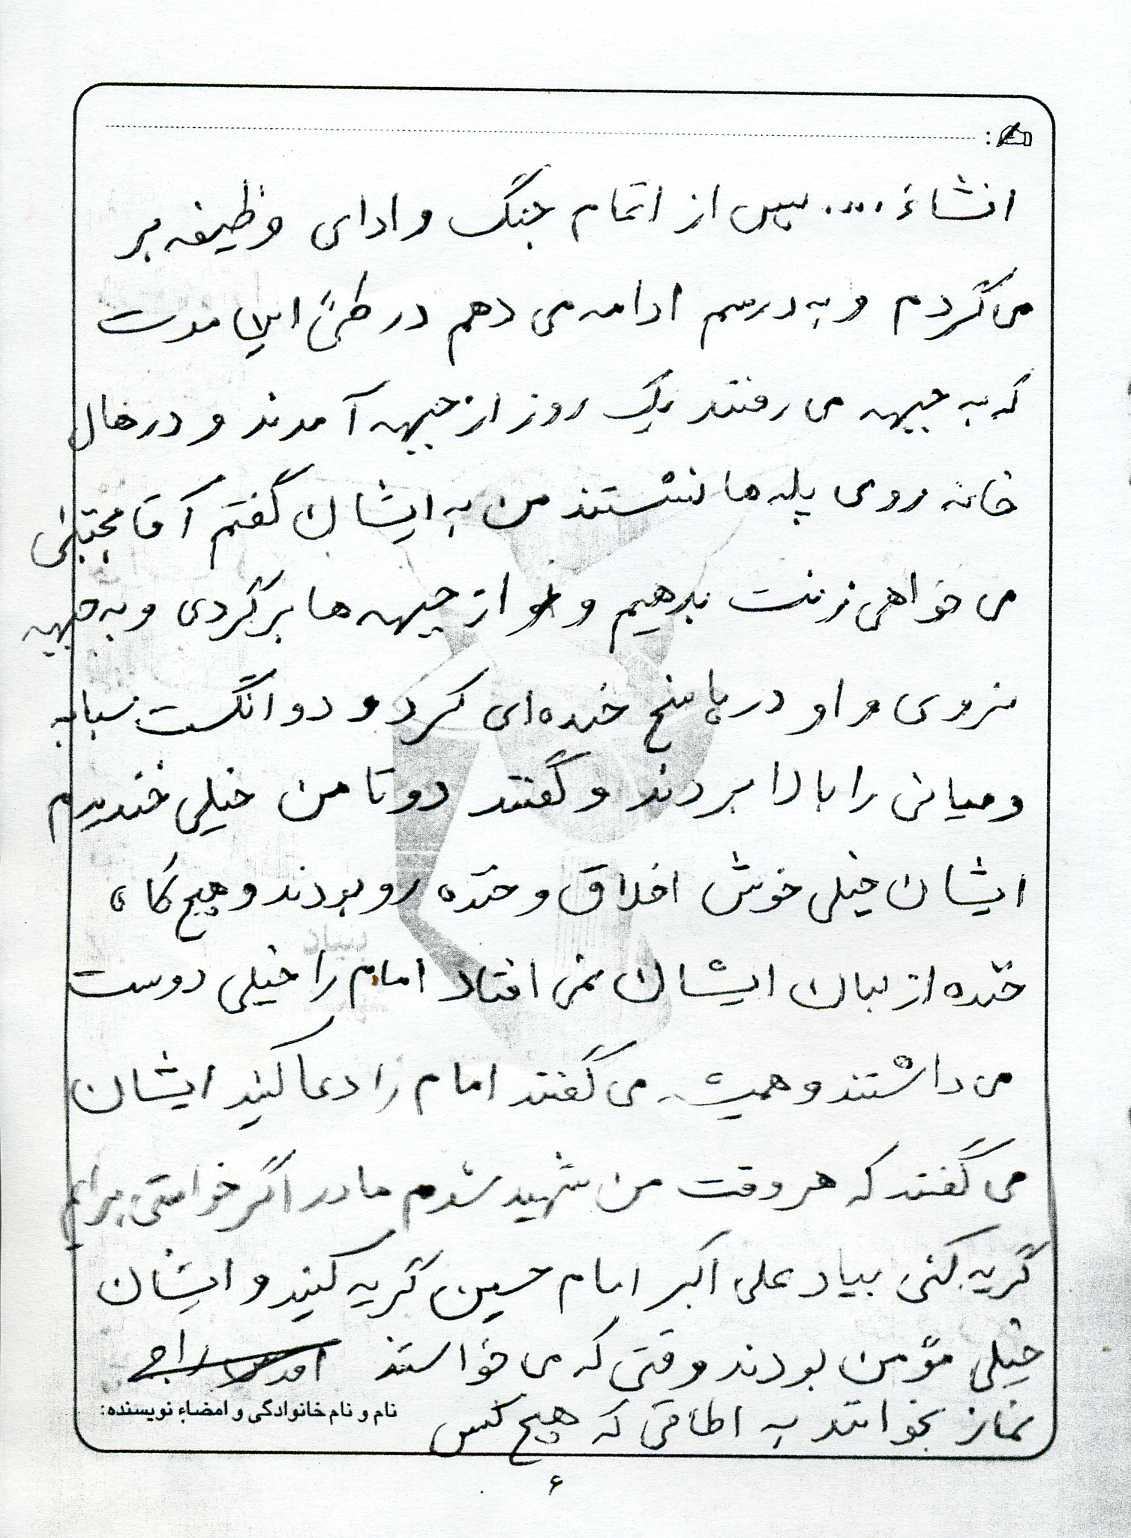 انشاء.... پس از اتمام جنگ و ادای وظیفه بر
می گردم و به درسم ادامه می دهم در طیّ این مدت
که به جبهه می رفتند یک روز از جبهه آمدند و در هال
خانه روی پله ها نشستند من به ایشان گفتم آقا مجتبی
می خواهی زنت بدهیم و از جبهه ها برگردی و به جبهه
نروی و او در پاسخ خنده ای کرد و دو انگست سبابه
و میانی را بالا بردند و گفتند دو تا من خیلی خندیدم
ایشان خیلی خوش اخلاق و خنده رو بودند و هیچ گاه
خنده از لبان ایشان نمی افتاد امام را خیلی دوست
می داشتند و همیشه می گفتند امام را دعا کنید ایشان
می گفتند که هر وقت من شهید شدم مادر اگر خواستی برایم
گریه کنی بیاد علی اکبر امام حسین گریه کنید و ایشان
خیلی مؤمن بودند وقتی که می خواستند
نماز بخوانند به اطاقی که هیچ کس
نام و نام خانوادگی و امضاء نویسنده:
۶